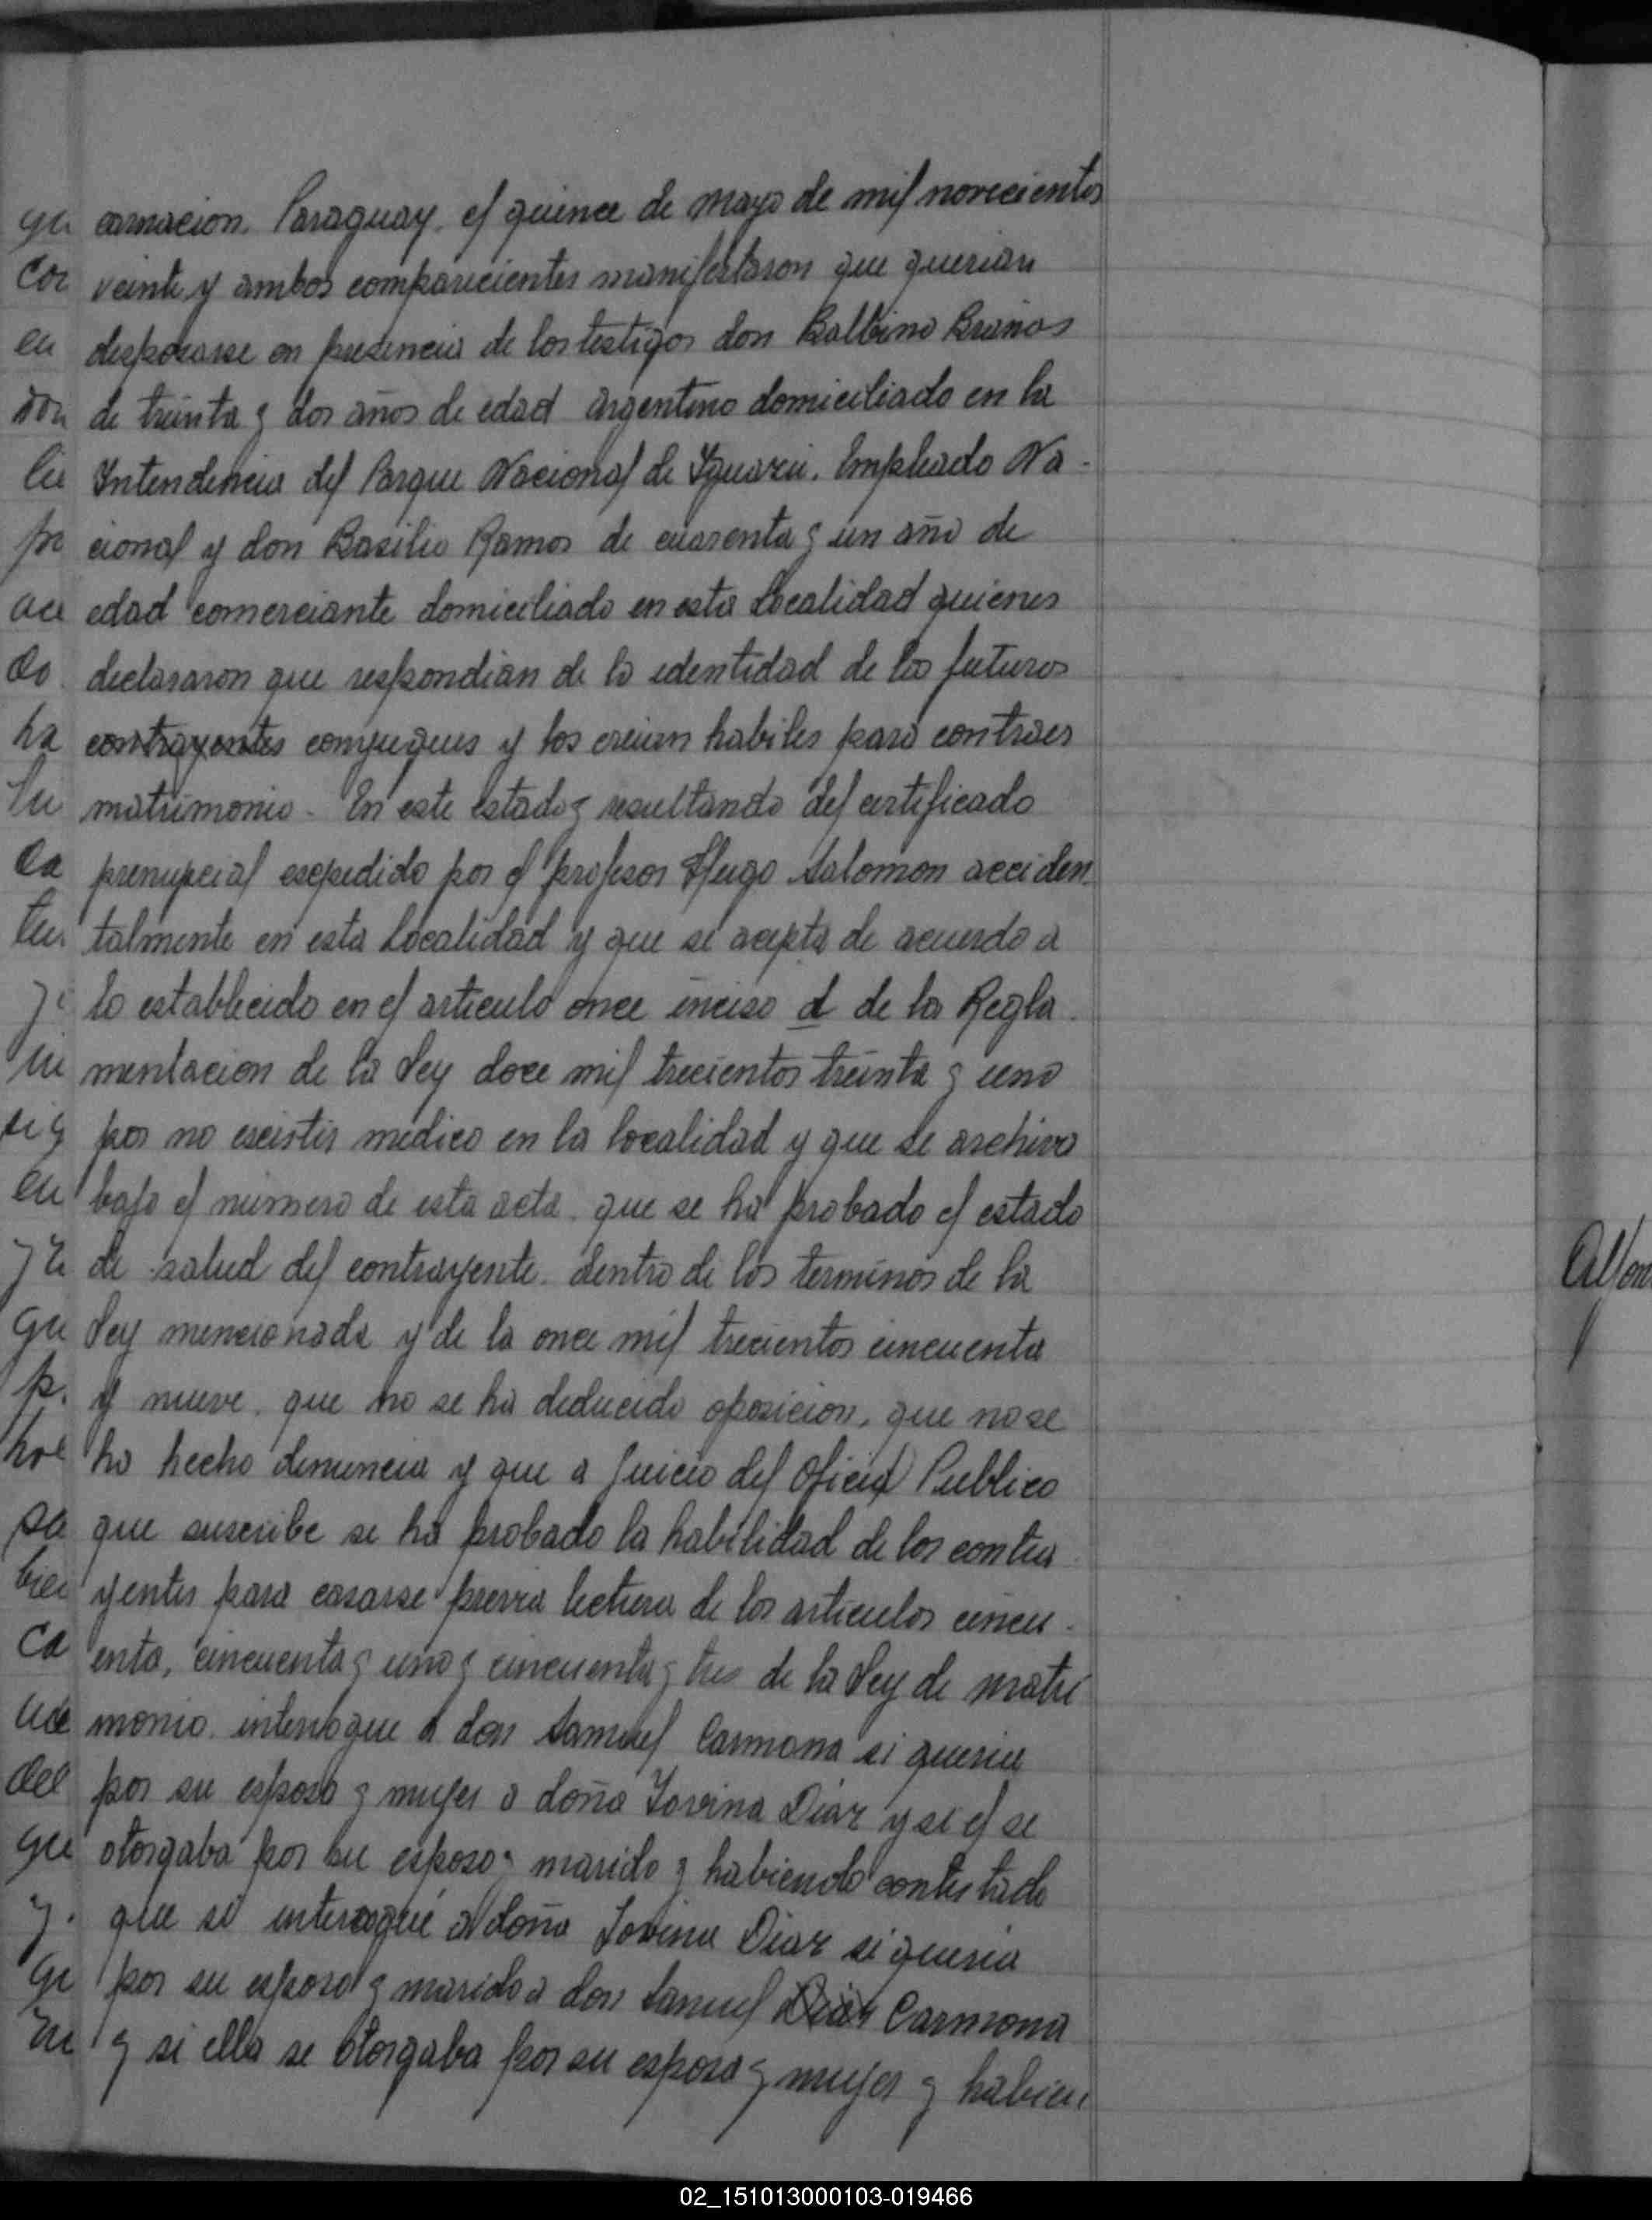 carnacion. Paraguay. el quince de mayo de mil novecientos
veinte y ambos comparecientes manifestaron que querian
desposarse en presencia de los testigos don Balbino Brañas
de treinta y dos años de edad argentino domiciliado en la
Intendencia del Parque Nacional de Yguazú. Empleado Na-
cional y don Basilio Ramos de cuarenta y un año de
edad comerciante domiciliado en esta Localidad quienes
declararon que respondian de la identidad de los futuros
contrayentes conyugues y los creian habiles para contraer
matrimonio - En este estado y resultando del certificado
prenupcial escpedido por el profesor Hugo Salomon acciden-
talmente en esta Localidad y que se acepta de acuerdo a
lo establecido en el articulo once inciso d de la Regla-
mentacion de la Ley doce mil trecientos treinta y uno
por no escistir medico en la localidad y que se archiva
bajo el número de esta acta. que se ha probado el estado
de salud del contrayente. dentro de los terminos de la
Ley mencionada y de la once mil trecientos cincuenta
y nueve. que no se ha deducido oposicion. que no se
ha hecho denuncia y que a Juicio del Oficial Publico
que suscribe se ha probado la habilidad de los contra-
yentes para casarse previa lectura de los articulos cincu-
enta, cincuenta y uno y cincuenta y tres de la Ley de matri
monio. interrogue a don Samuel Carmona si queria
por su esposa y mujer a doña Jovina Diaz y si el se
otorgaba por su esposo y marido y habiendo contestado
que si interogué a doña Jovina Diaz si queria
por su esposo y marido a don Samuel Diaz Carmona
y si ella se otorgaba por su esposa y mujer y habien-
02_151013000103-019466